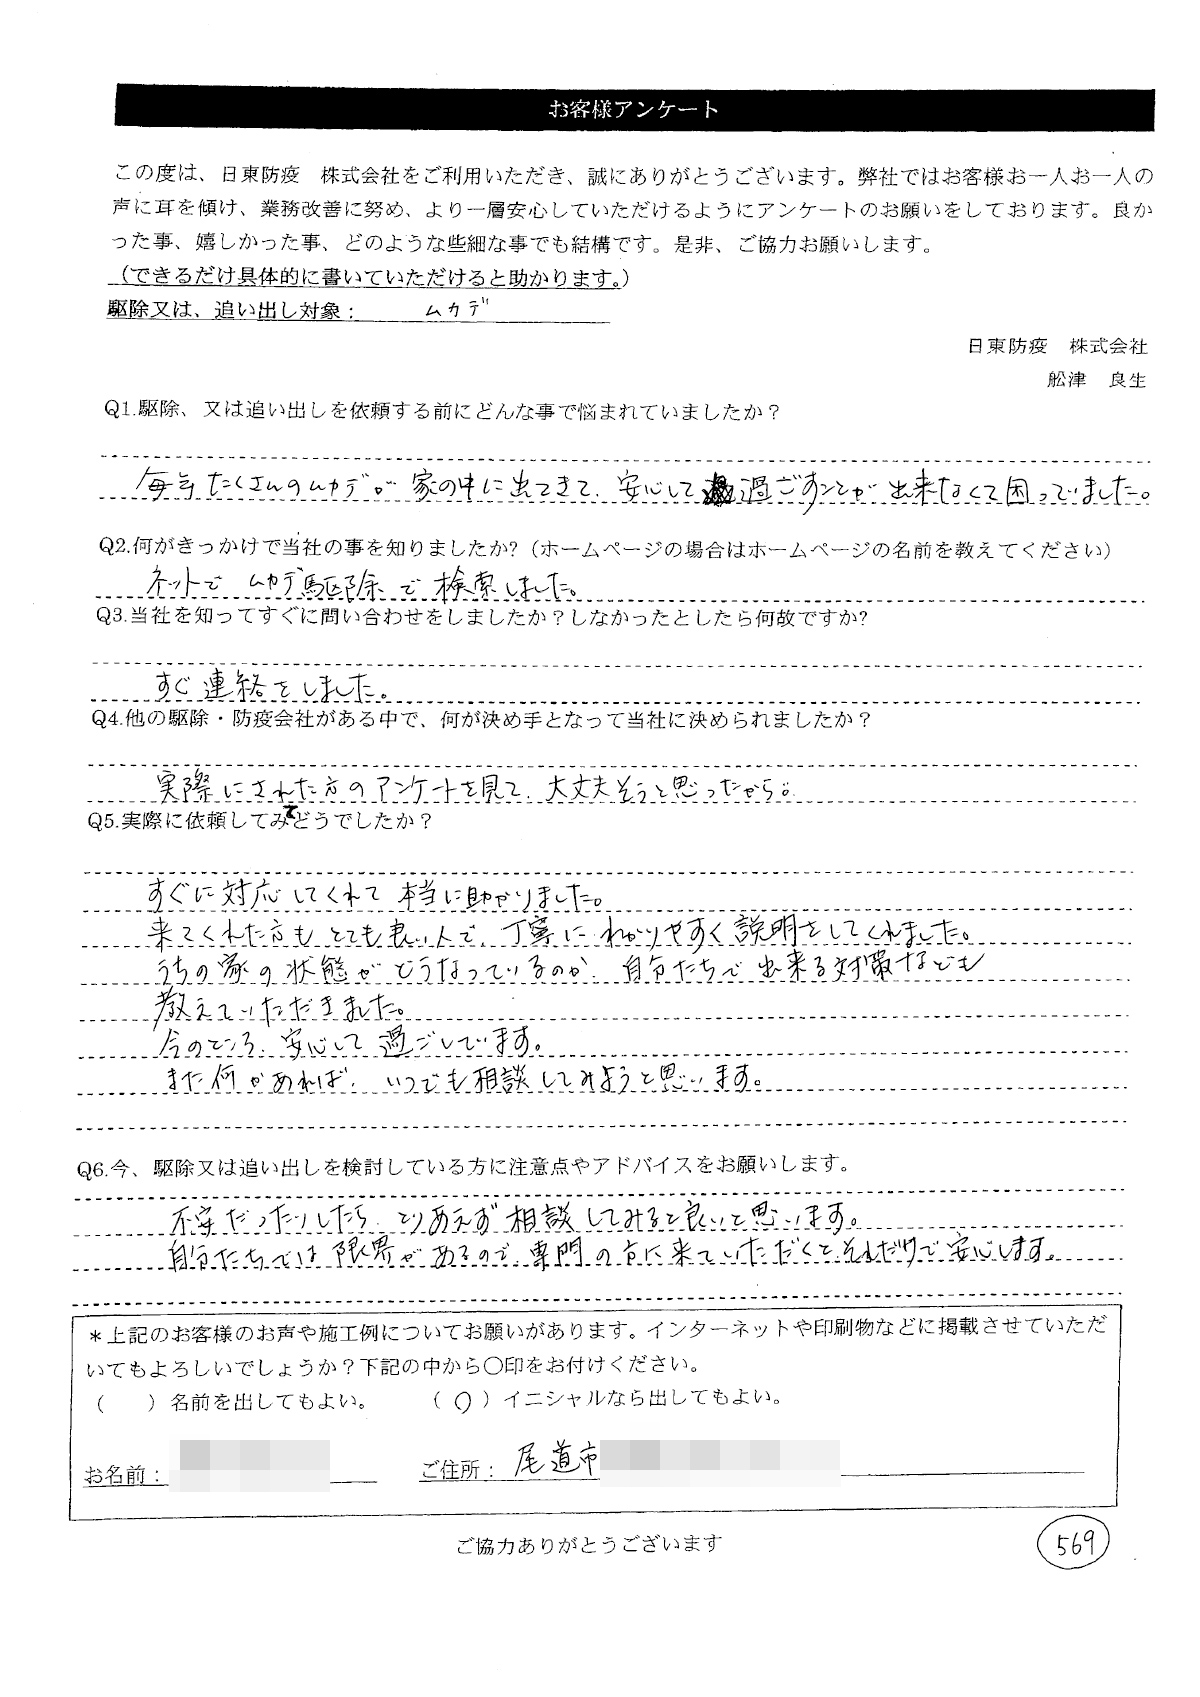 お客様アンケート
この度は、日東防疫　株式会社をご利用いただき、誠にありがとうございます。弊社ではお客様お一人お一人の
声に耳を傾け、業務改善に努め、より一層安心していただけるようにアンケートのお願いをしております。良か
った事、嬉しかった事、どのような些細な事でも結構です。是非、ご協力お願いします。
（できるだけ具体的に書いていただけると助かります。）
駆除又は、追い出し対象： ムカデ
日東防疫　株式会社
舩津　良生
Q1.駆除、又は追い出しを依頼する前にどんな事で悩まれていましたか？
毎年たくさんのムカデが家の中に出てきて、安心して過ごすことが出来なくて困っていました。
Q2.何がきっかけで当社の事を知りましたか?（ホームページの場合はホームページの名前を教えてください）
ネットで ムカデ駆除で検索しました。
Q3.当社を知ってすぐに問い合わせをしましたか？しなかったとしたら何故ですか?
すぐ連絡をしました。
Q4.他の駆除・防疫会社がある中で、何が決め手となって当社に決められましたか？
実際にされた方のアンケートを見て、大丈夫そうと思ったから。
Q5.実際に依頼してみてどうでしたか？
すぐに対応してくれて本当に助かりました。
来てくれた方もとても良い人で、丁寧にわかりやすく説明をしてくれました。
うちの家の状態がどうなっているのか、自分たちで出来る対策なども
教えていただきました。
今のところ、安心して過ごしています。
また何かあれば、いつでも相談してみようと思います。
Q6.今、駆除又は追い出しを検討している方に注意点やアドバイスをお願いします。
不安だったりしたら、とりあえず相談してみると良いと思います。
自分たちでは限界があるので、専門の方に来ていただくと、それだけで安心します。
＊上記のお客様のお声や施工例についてお願いがあります。インターネットや印刷物などに掲載させていただ
いてもよろしいでしょうか？下記の中から○印をお付けください。
（　　）名前を出してもよい。　　（ ○ ）イニシャルなら出してもよい。
お名前：　　ご住所： 尾道市
ご協力ありがとうございます
569